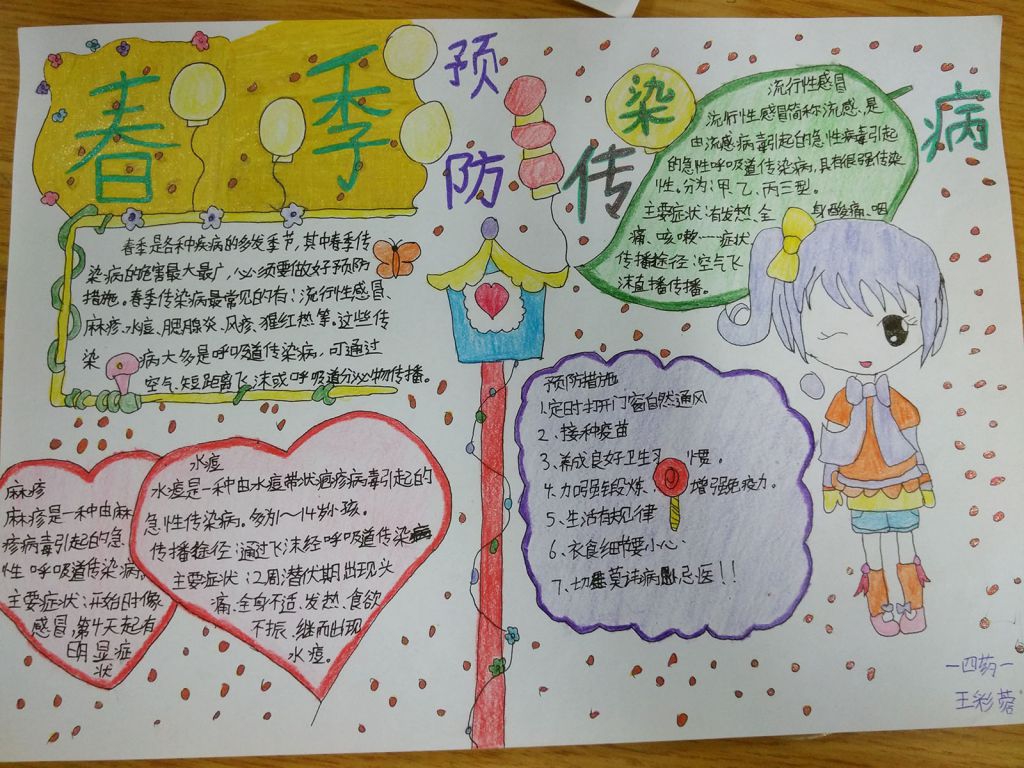 春季预防传染病
春季是各种疾病的多发季节,其中春季传
染病的危害最大最广,必须要做好预防
措施。春季传染病最常见的有:流行性感冒、
麻疹、水痘、腮腺炎、风疹、猩红热等。这些传
染病大多是呼吸道传染病,可通过
空气、短距离飞沫或呼吸道分泌物传播。
流行性感冒
流行性感冒简称流感,是
由流感病毒引起的急性病毒引起
的急性呼吸道传染病,具有很强传染
性。分为:甲、乙、丙三型。
主要症状:有发热、全身酸痛、咽
痛、咳嗽……症状
传播途径:空气飞
沫直播传播。
麻疹
麻疹是一种由麻
疹病毒引起的急
性呼吸道传染病。
主要症状:开始时像
感冒,第4天起有
明显症
状
水痘
水痘是一种由水痘带状疱疹病毒引起的
急性传染病。多列1~14岁小孩。
传播途径:通过飞沫经呼吸道传染病
主要症状:2周潜伏期出现头
痛、全身不适、发热、食欲
不振、继而出现
水痘。
预防措施
1、定时打开门窗自然通风
2、接种疫苗
3、养成良好卫生习惯。
4、加强锻炼、增强免疫力。
5、生活有规律
6、衣食细节要小心
7、切莫讳病忌医!!
一四药一
王彩蓉